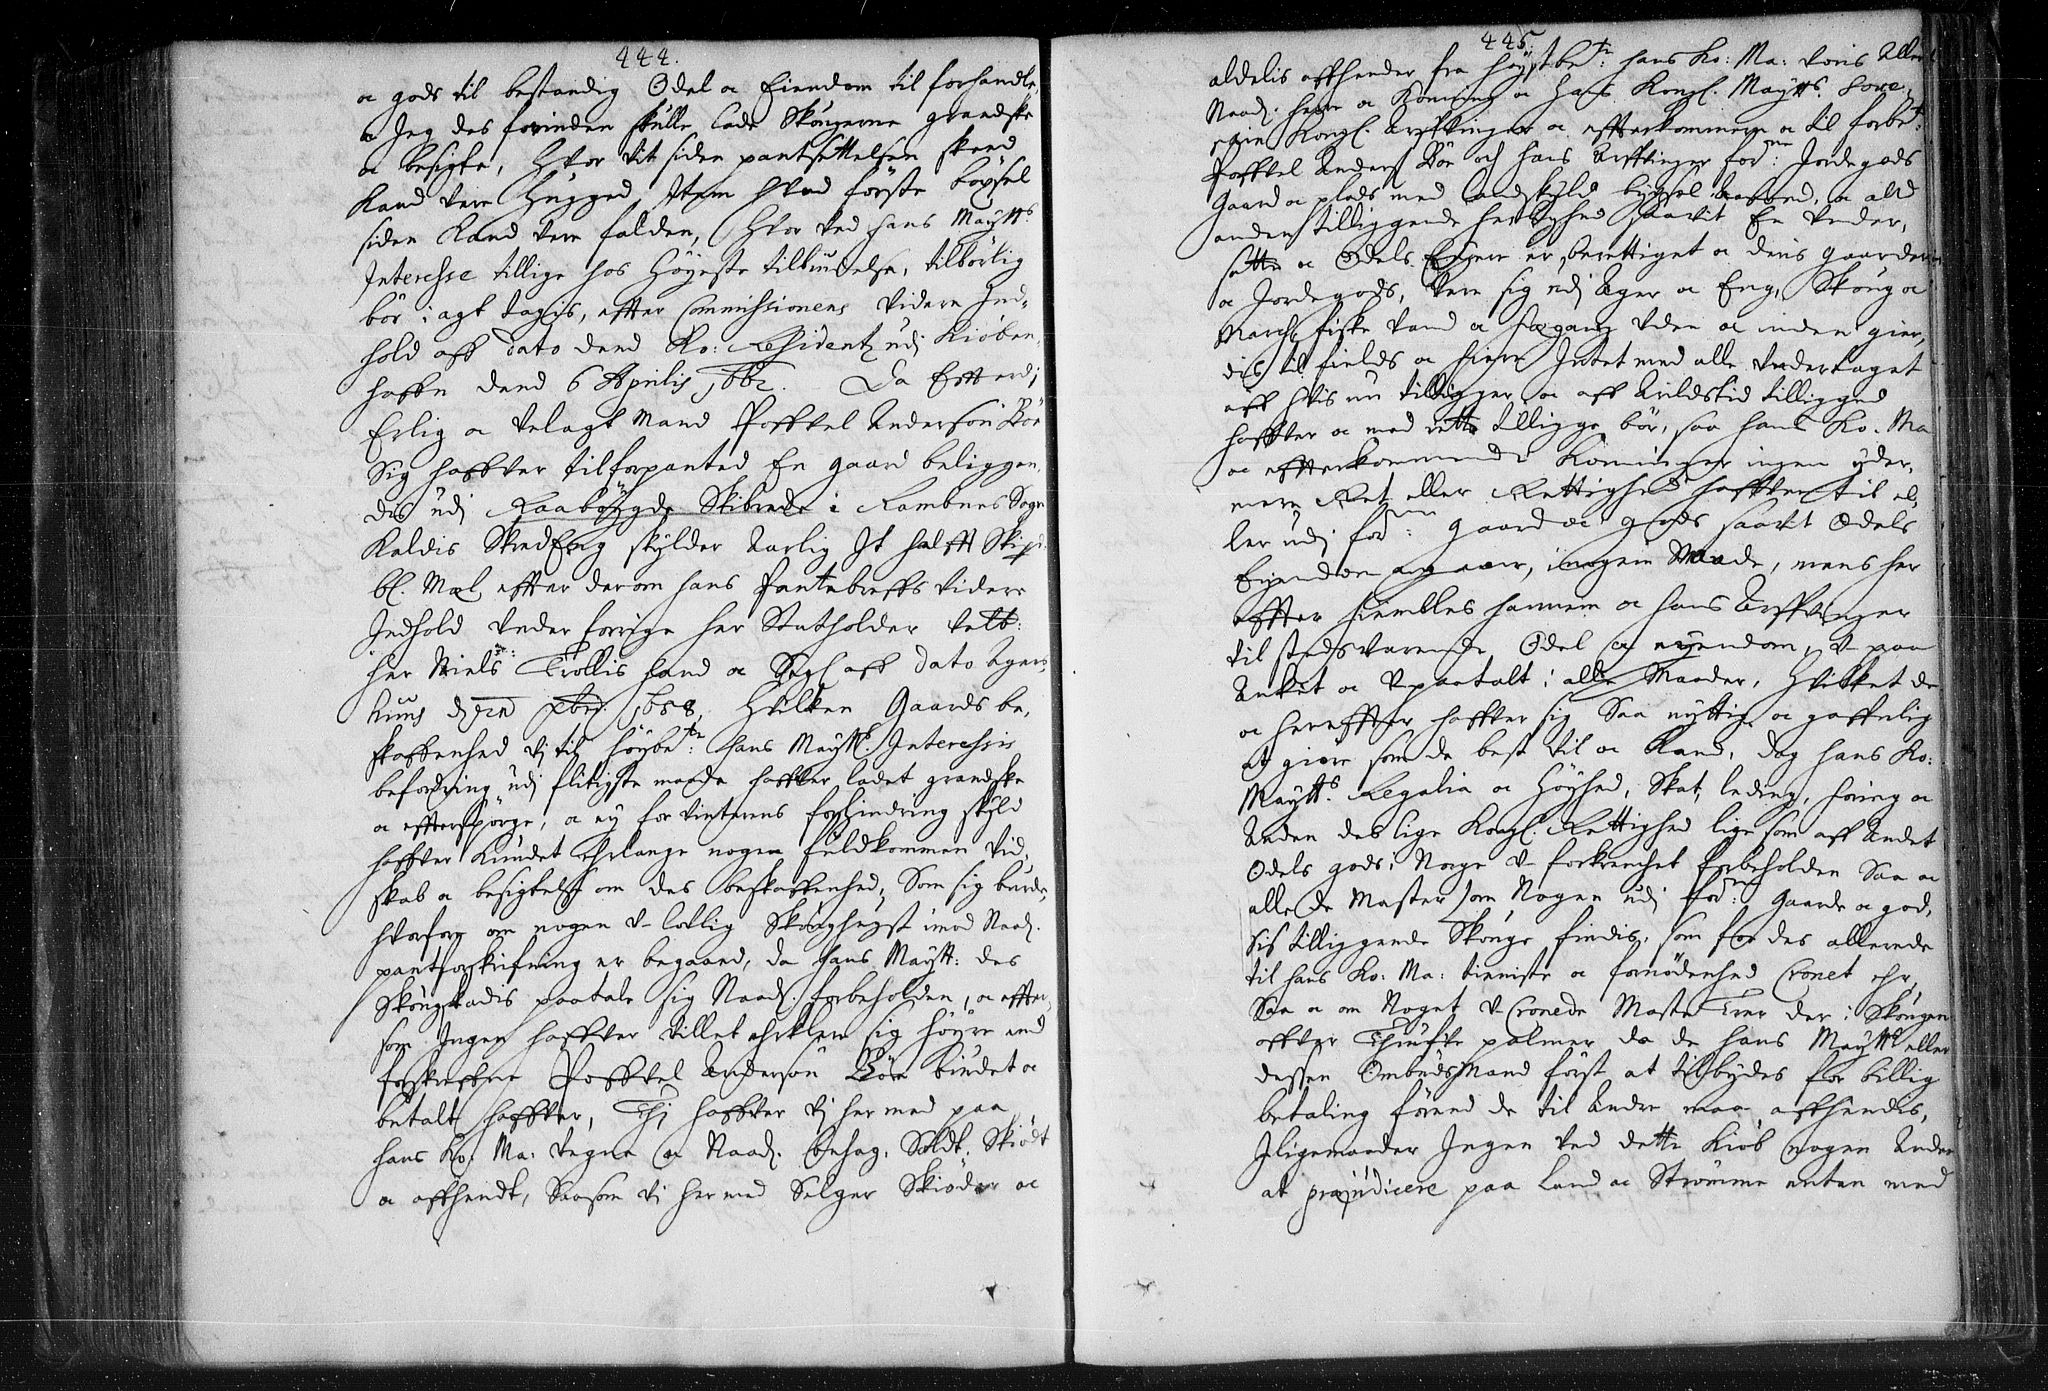 444.
a gods til bestandig Odel a Eiendom til forhandle,
a Jeg des forinden skulle lade Skougerne grandske
a besigte, Hvor vit siden pantsettelsen skeed
Kand vere Hugged Item hvad förste böxsel
siden Kand vere falden, Hvor ved hans Maÿtts
Interesse tillige hos Höÿeste tilbörlig
bör i agt tagis, effter Commissionens Videre Ind-
hold aff Dato dend Ko: Residentz udj Kiöben-
haffn dend 6 Aprilis 1662. Da Efterdj
Erlig a Velagt Mand Poffvel Andersön Böe
Sig haffver tilforpanted En gaard beliggen-
dis udj Raabÿgde Skibrede i Rambnes Sogn
Kaldis SkredEng skylder Aarlig It halfft Skip
bl. Mel effter derom hans Pantebreffs Videre
Indhold Under forrige her Statholder Velb:
her Niels Trollis hand a Segl aff Dato Agers-
huus d. 1658, Hvilken Gaards be-
skaffenhed Vj til höÿbe:te hans Maÿtts Interessis
befordring udj flitigste maade haffver ladet grandske
a effterspörge, a eÿ for Vinterens forhindring skyld
haffver Kundet Erlange nogen fuldkommen Vid-
skab a besigtelse om des beskaffenhed, Som sig burde,
Hvorfor om nogen U-lovlig Skoughugst imod Naad.
pantforskrifning er begaaed, da hans Maÿtt: des
Skougskadis paatale sig Naad. forbeholden, a effter-
som Ingen haffver Villet Erklere sig höÿre end
forskreffne Poffvel Andersön Böe biudet a
betalt haffver, Thj haffver Vj her med paa
hans Ko: Ma: Vegne a Naad. behag. Soldt, Skiödt
a affhendt, Saasom Vj hermed Selger Skiöder a
445.
aldelis affhender fra höÿstbe:te hans Ko: Ma: Voris Aller
Naad. herre a Konning a Hans Kongl. Maÿtts. Sove-
rain Kongl. Arffvinger a effterkommere a til forbe:te
Poffvel Anders Böe och hans Arffvinger for:ne Jordegods
Gaard a plads med landskyld bÿgsel a ald
anden tilliggende herlighed saavit En Under-
satte a Odels Eÿere er berettiget a dens gaarder
a Jordegods, Vere sig udj Ager a Eng, Skoug a
March, fiske Vand a fægang Uden a inden gier-
dis til fields a fiere Intet med alle Undertaget
aff hvis nu tilligger a aff Arildstid tilligged
haffver a med rette tilligge bör, saa hans Ko. Ma
a effterkommende Konninger ingen ÿder-
mere Ret eller Rettighed haffver til el-
ler udj for:ne gaard a gods saavit Odels
Eÿendom angaar, i nogen Maade, mens her
effter hiembles hannem a hans Arffvinger
til stedsvarende Odel a eÿendom, U-paa
Anket a Upaatalt i alle Maader, Hvilket de
a hereffter haffver sig saa nyttig a gaffnlig
at giöre som de best Vil a Kand, dog hans Ko:
Maÿtts. Regalia a Höÿhed, Skat, leding, foring a
Anden deslige Kongl. Rettighed lige som aff Andet
Odels gods i Norge U-forkrenchet forbeholden Saa a
alle de Master som Nogen udj for:ne gaarde a god-
sis tilliggende Skouge findis, som for des allerede
til hans Ko: Ma: tienniste a fornödenhed Cronet ehr,
Saa a om Noget U-Cronede Maste Trær der i Skougen
offver Thiufve palmer da de hans Maÿtts eller
dessen OmbudsMand först at tilbÿdes for billig
betaling förend de til Andre maa affhendis,
Iligemaader Ingen ved dette Kiöb nogen Anden
at præjudicere paa Land a Strömme enten med